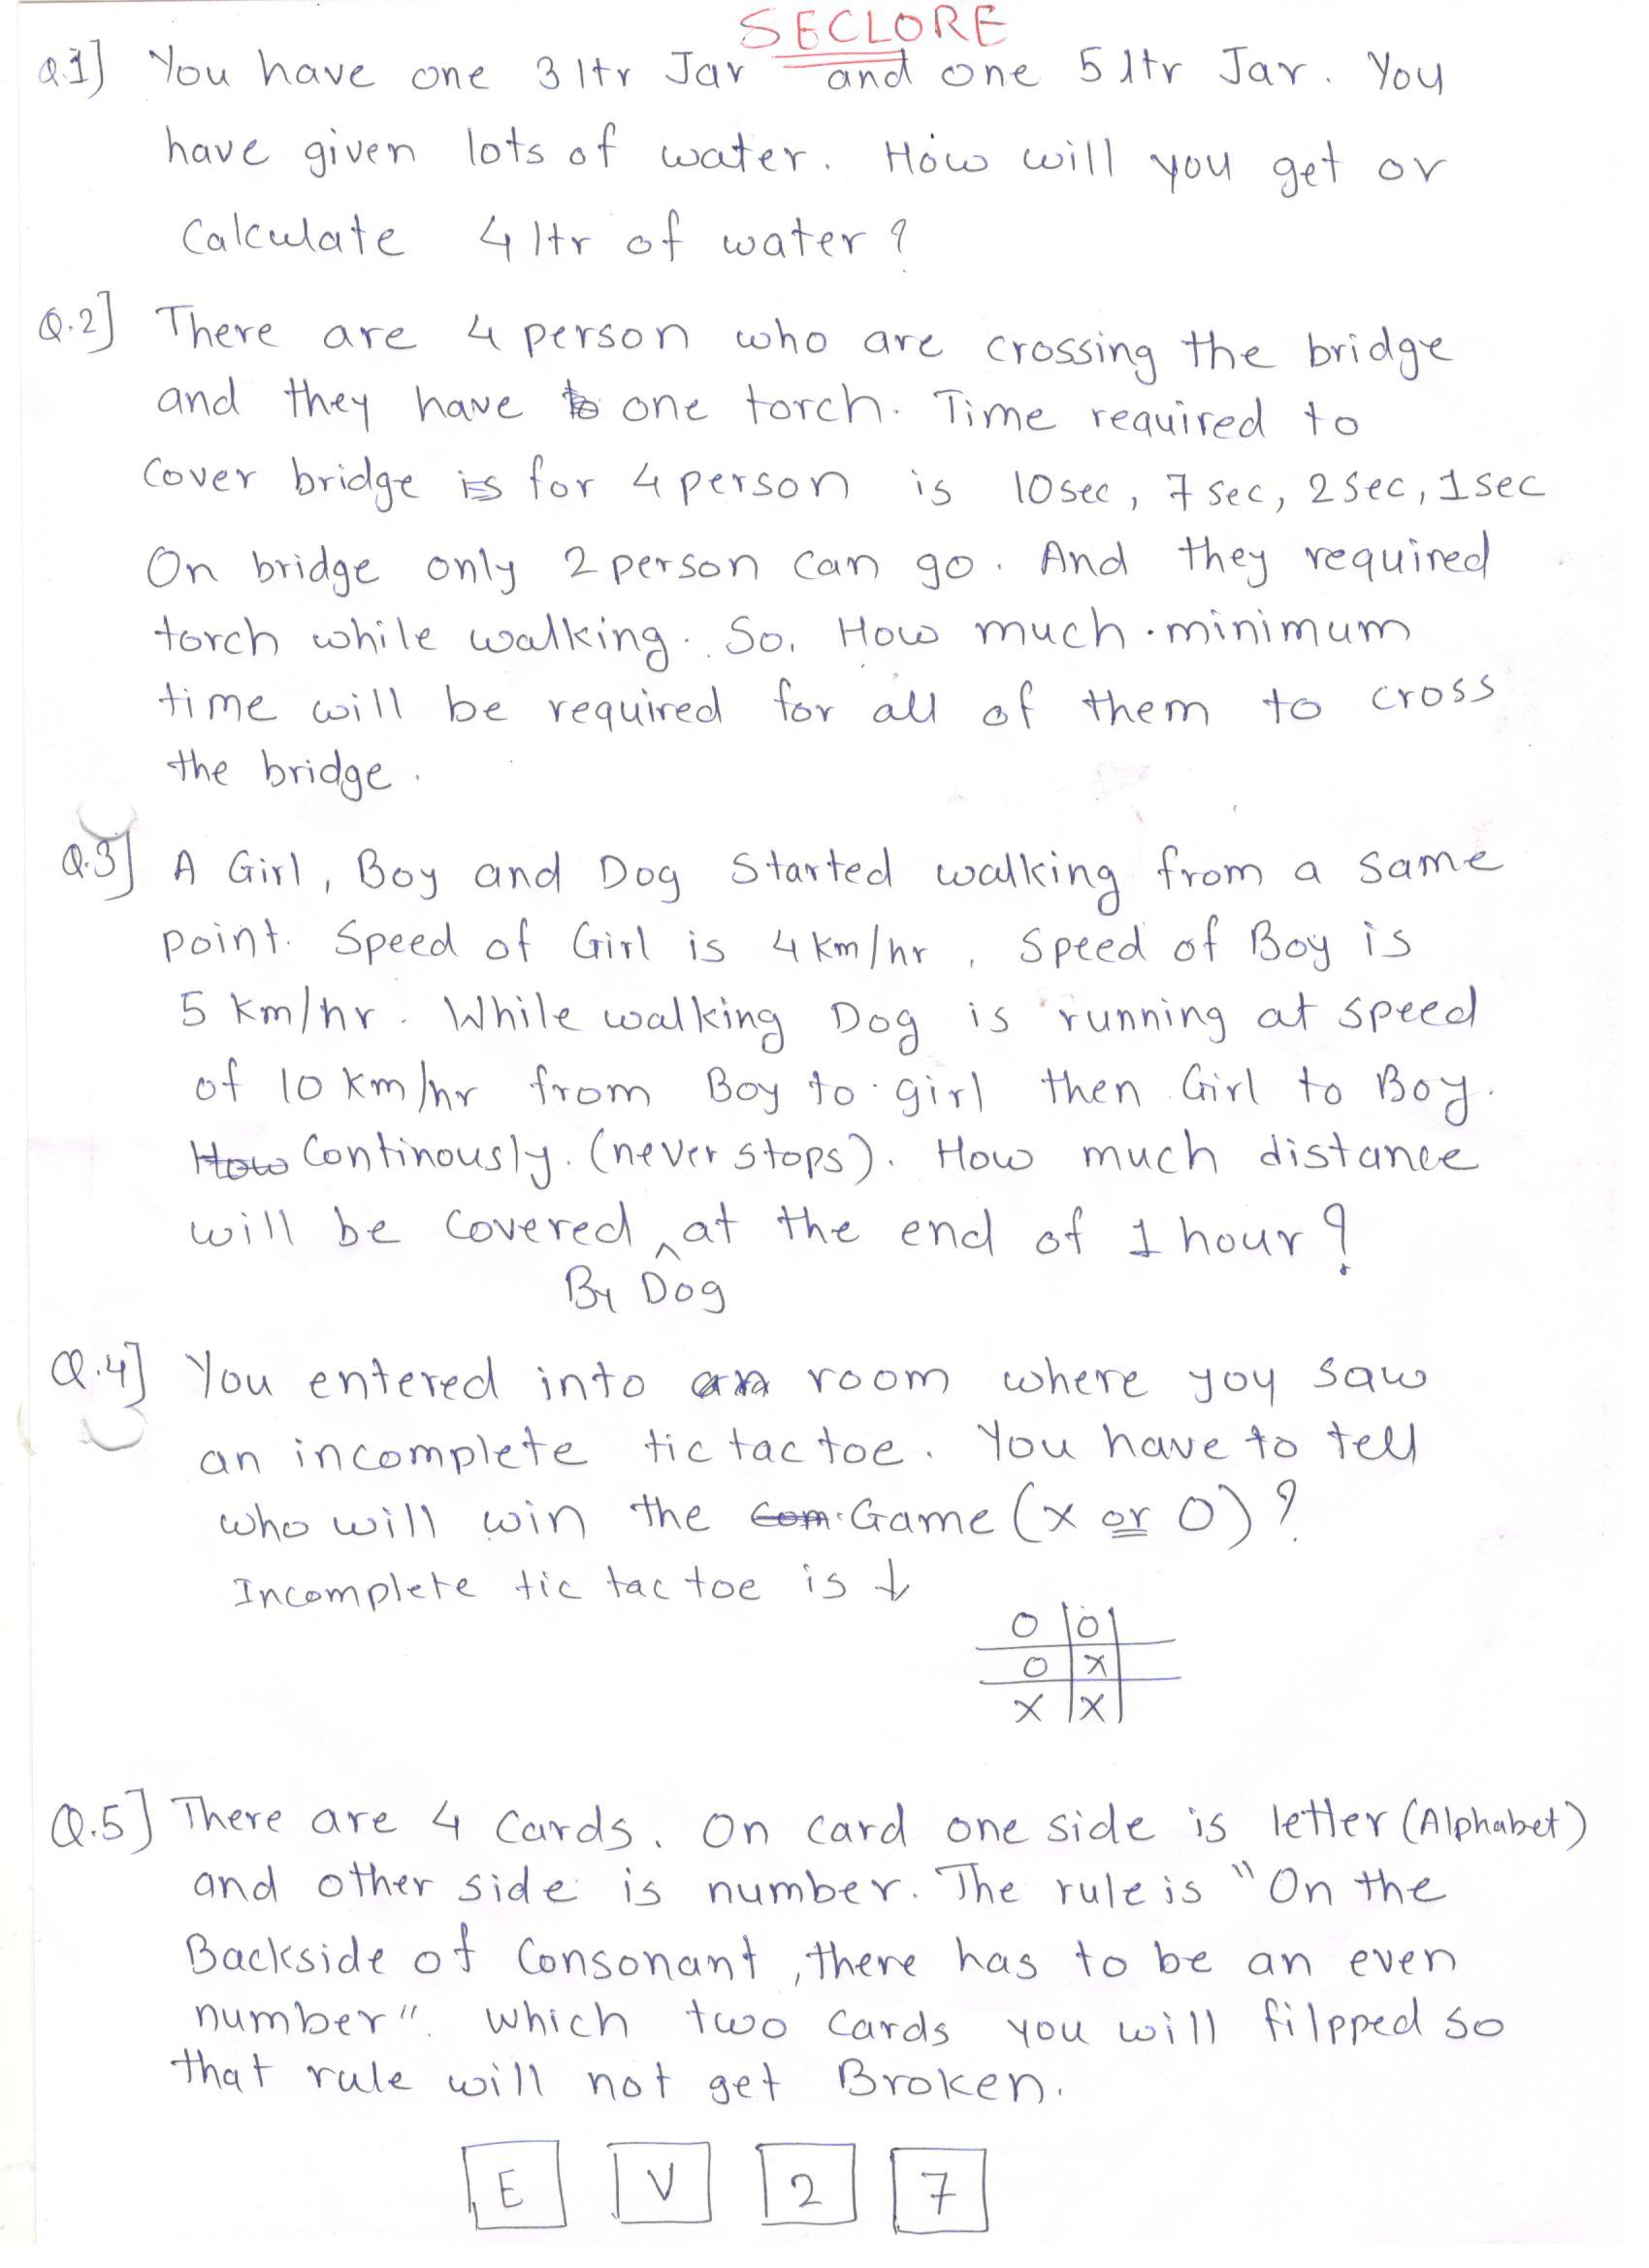 SECLORE
Q.1] You have one 3 ltr Jar and one 5 ltr Jar. You
have given lots of water. How will you get or
Calculate 4 ltr of water?
Q.2] There are 4 person who are crossing the bridge
and they have one torch. Time required to
Cover bridge is for 4 person is 10sec, 7 sec, 2 sec, 1 sec
On bridge only 2 person can go. And they required
torch while walking. So, How much minimum
time will be required for all of them to cross
the bridge.
Q.3] A Girl, Boy and Dog Started walking from a same
point. Speed of Girl is 4 km/hr, Speed of Boy is
5 km/hr. While walking Dog is running at speed
of 10 km/hr from Boy to girl then Girl to Boy.
How Continously. (never stops). How much distance
will be covered ^ at the end of 1 hour?
By Dog
Q.4] You entered into an room where yoy saw
an incomplete tic tac toe. You have to tell
who will win the Com. Game (x or O)?
Incomplete tic tac toe is ↓
O O
O X
X X
Q.5] There are 4 Cards. On card one side is letter (Alphabet)
and other side is number. The rule is "On the
Backside of Consonant, there has to be an even
number". which two cards you will filpped so
that rule will not get Broken.
E V 2 7